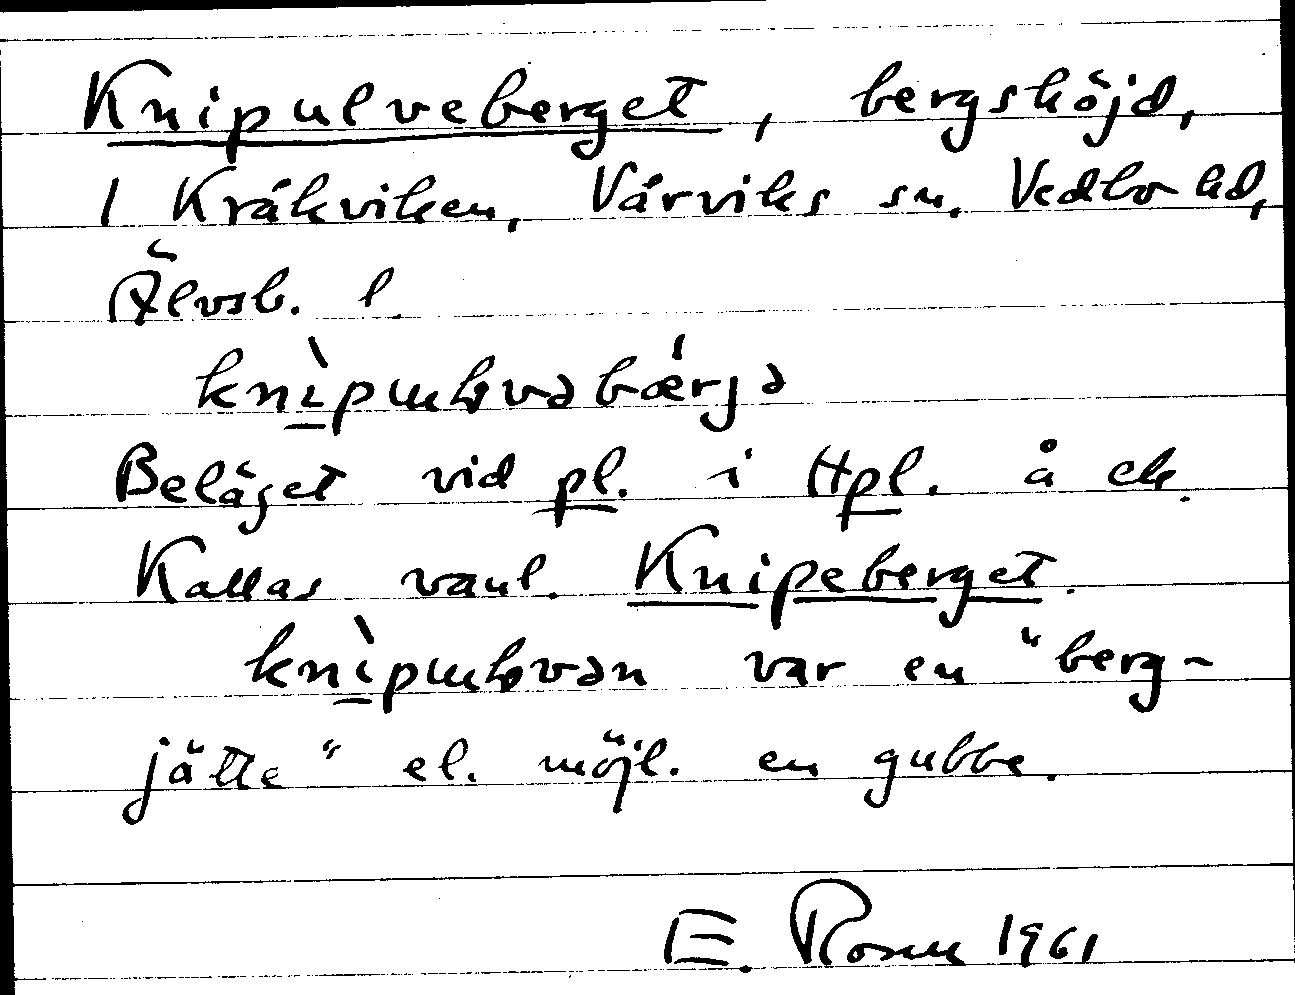 Knipulveberget, bergshöjd,
I Kråkviken, Vårviks sn. Vedbo hd,
Älvsb. l.
Beläget vid pl. i Hpl. å ek.
Kallas vanl. Knipeberget.
var en "berg-
jätte" el. möjl. en gubbe.
E. Rosen 1961